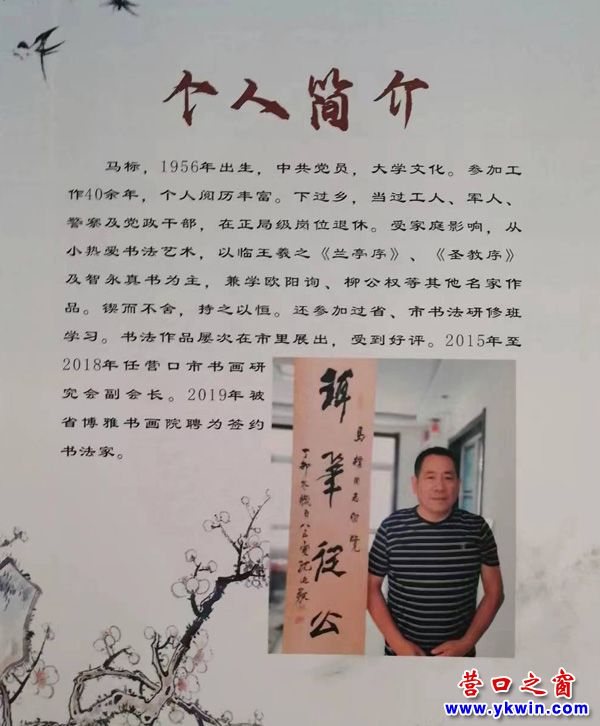 个人简介
马标，1956年出生，中共党员，大学文化。参加工
作40余年，个人阅历丰富。下过乡，当过工人、军人、
警察及党政干部，在正局级岗位退休。受家庭影响，从
小热爱书法艺术，以临王羲之《兰亭序》、《圣教序》
及智永真书为主，兼学欧阳询、柳公权等其他名家作
品。锲而不舍，持之以恒。还参加过省、市书法研修班
学习。书法作品屡次在市里展出，受到好评。2015年至
2018年任营口市书画研
究会副会长。2019年被
省博雅书画院聘为签约
书法家。
秉笔从公
营口之窗
www.ykwin.com